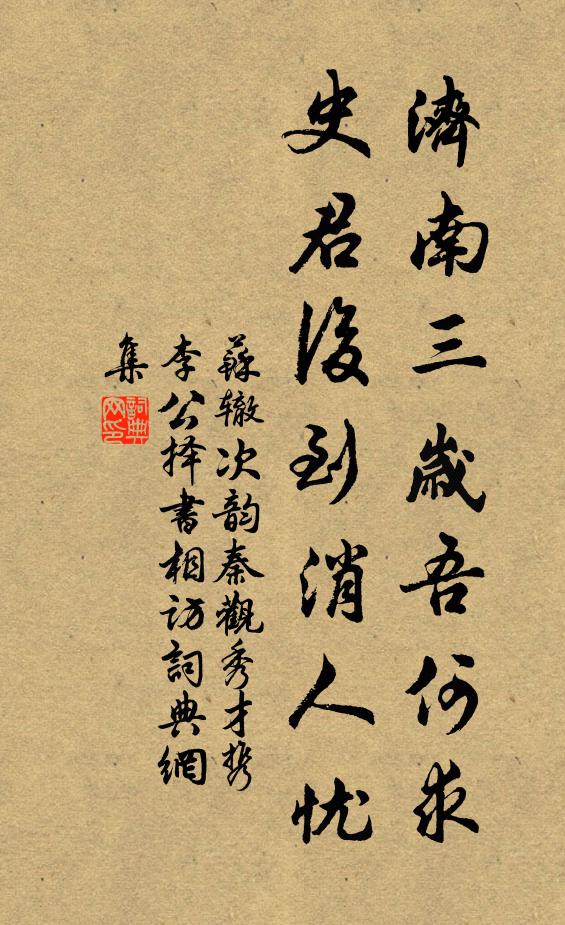 濟南三歲吾何求
史君後到消人忧
蘇辙次韵秦觀秀才携
李公择書相访詞典網
集
詞典
网印